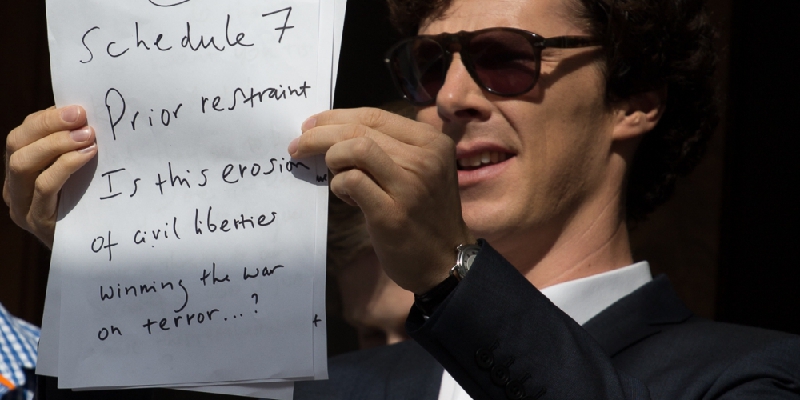 Schedule 7
Prior restraint
Is this erosion
of civil liberties
winning the war
on terror...?